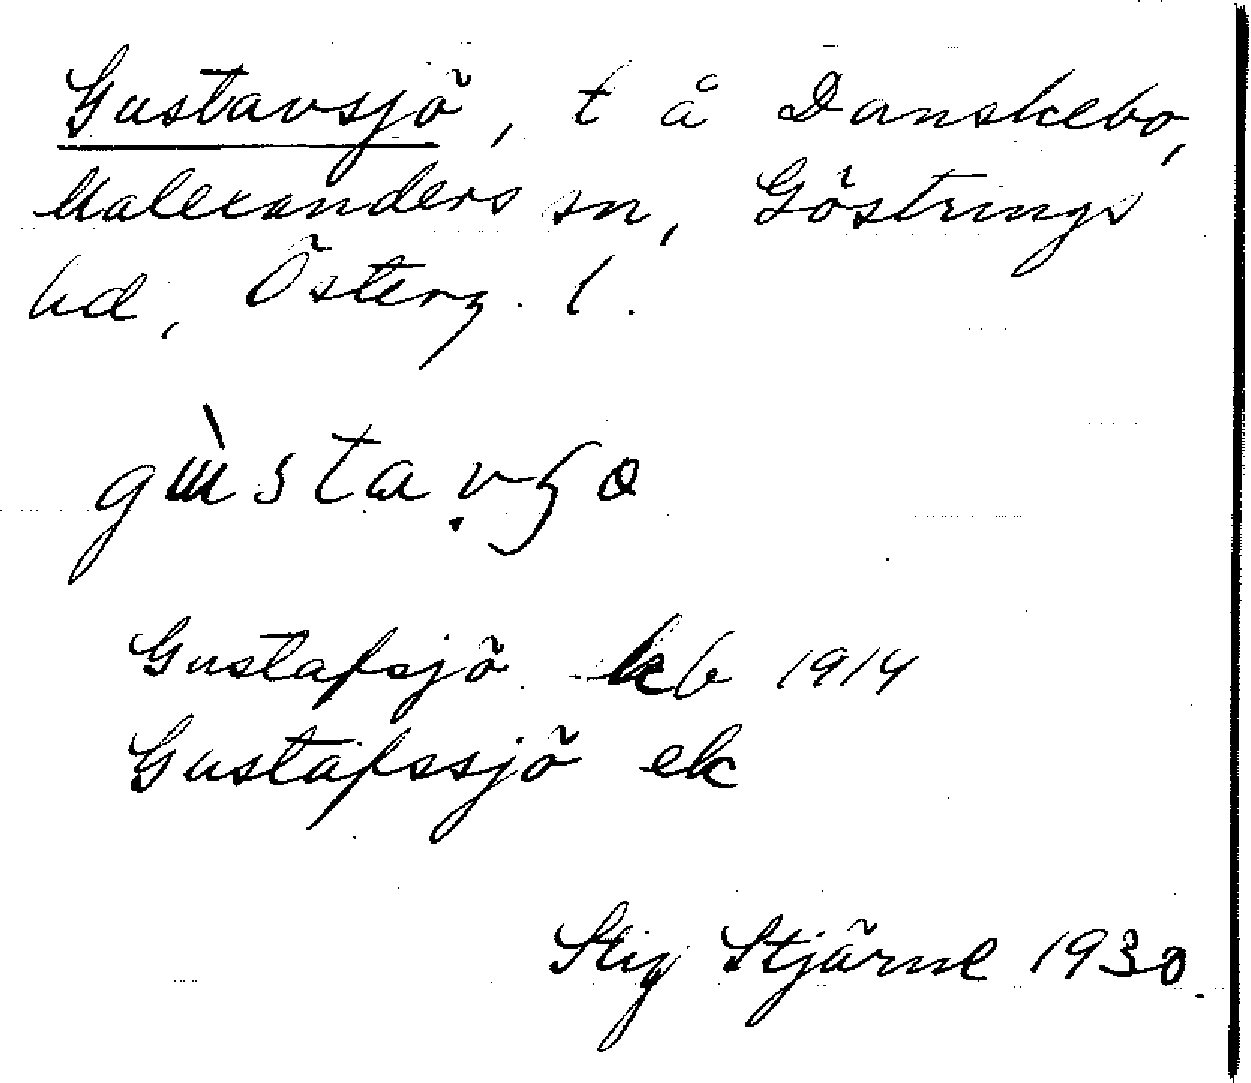 Gustavsjö, t å Danskebo,
Malexanders sn, Göstrings
hd, Österg. l.
Gustafsjö kb 1914
Gustafssjö ek
Stig Stjärne 1930